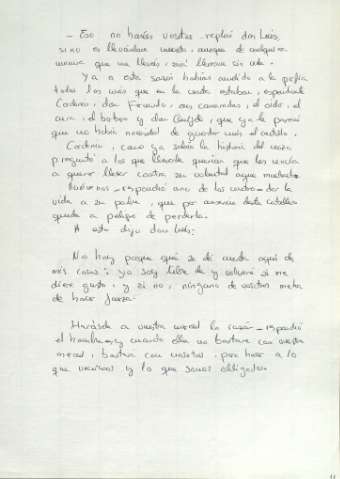 - Eso no haréis vosotros - replicó don Luis,
si no es llevándome muerto, aunque de cualquiera
manera que me llevéis, será llevarme sin vida.
Ya a esta sazón habían acudido a la porfía
todos los más que en la venta estaban, especialmente
Cardenio, don Fernando, sus camaradas, el oidor, el
cura, el barbero y don Quijote, que ya le pareció
que no había necesidad de guardar más el castillo.
Cardenio, como ya sabía la historia del mozo
preguntó a los que llevarle querían que les movía
a querer llevar contra su voluntad aquel muchacho.
Muévenos - respondió uno de los cuatro - dar la
vida a su padre, que por ausencia deste caballero
queda a peligro de perderla.
A esto dijo don Luis:
No hay porque que se dé cuenta aquí de
mis cosas: yo soy libre y volveré si me
diere gusto, y si no, ninguno de vosotros me ha
de hacer fuerza.
Harásela a vuestra merced la razón - respondió
el hombre, y cuando ella no bastare con vuestra
merced, bastará con nosotros, para hacer a lo
que venimos y lo que somos obligados.
11